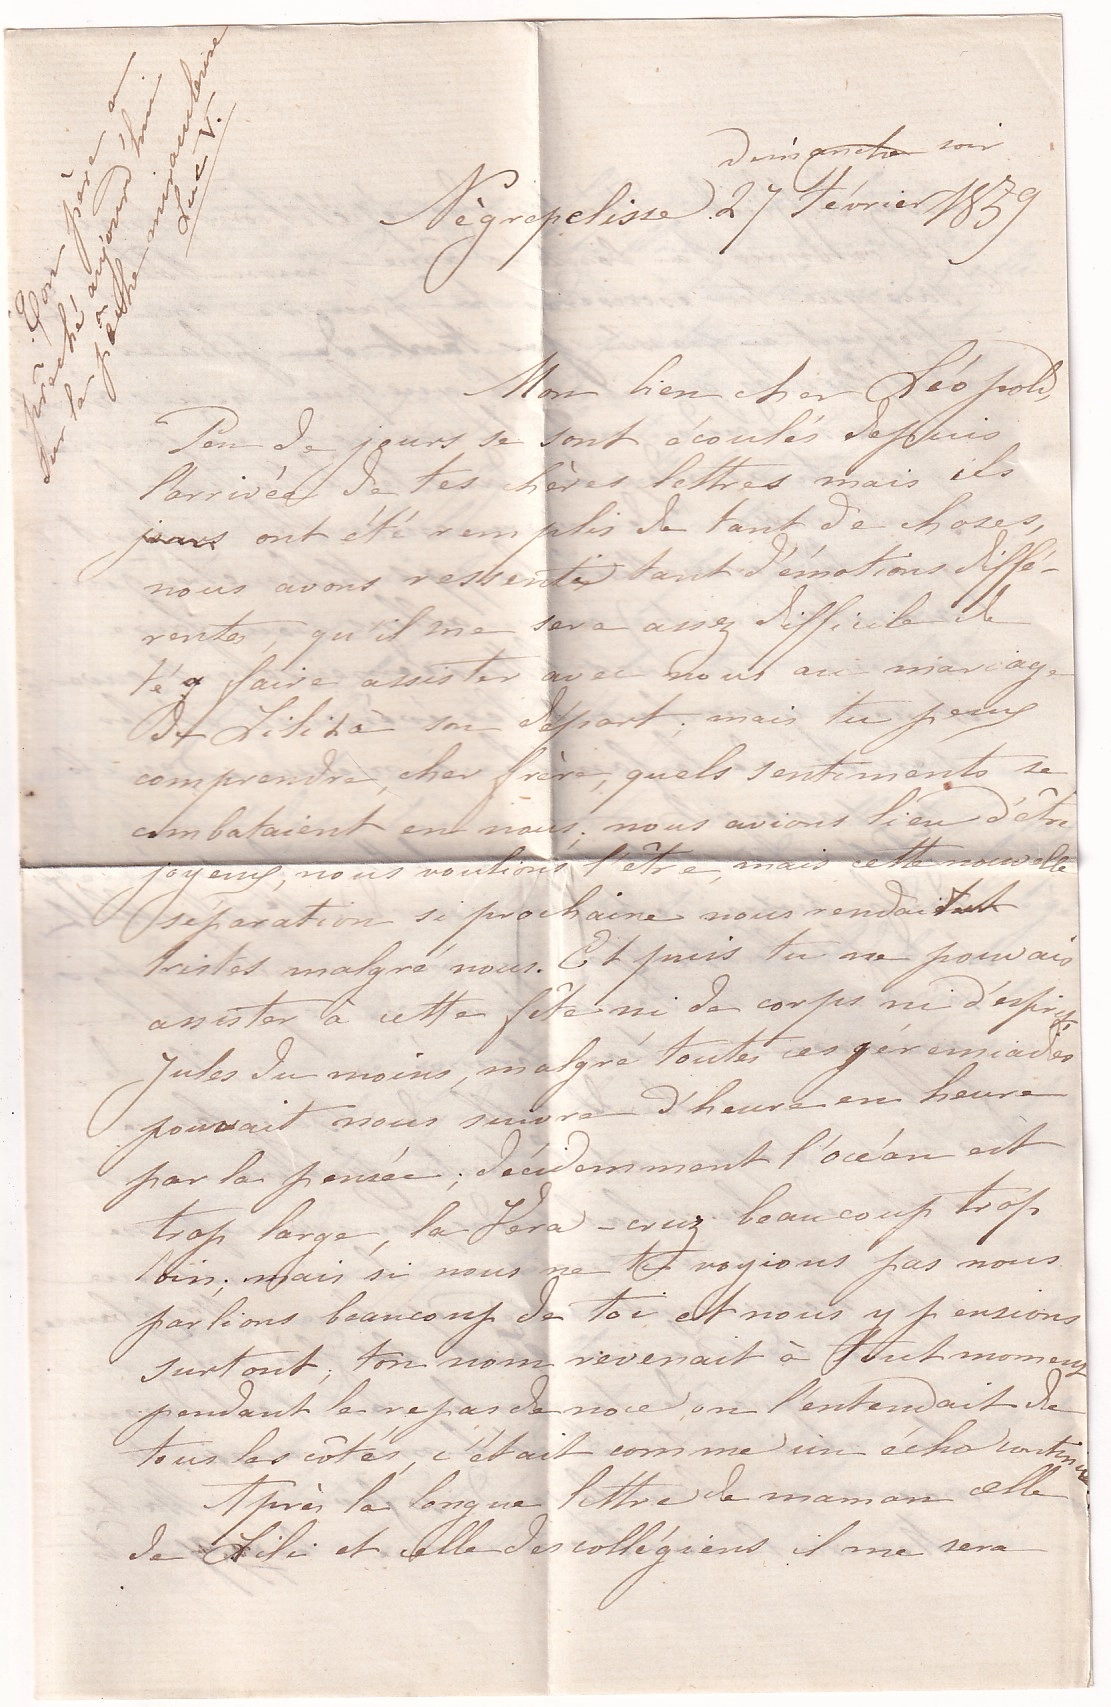 Ton père a
prêché aujourd'hui
sur la pêche miraculeuse
Luc V.
dimanche soir
Nègrepelisse 27 février 1859
Mon bien cher Léopold,
Peu de jours se sont écoulés depuis
l'arrivée de tes chères lettres mais ils
jours ont été remplis de tant de choses,
nous avons ressenti tant d'émotions diffé-
rentes, qu'il me sera assez difficile de
t'y faire assister avec nous au mariage
de Lili à son départ; mais tu peux
comprendre, cher frère, quels sentiments se
combataient en nous; nous avions lieu d'être
joyeux, nous voulions l'être, mais cette nouvelle
séparation si prochaine nous rendait
tristes malgré nous. Et puis tu ne pouvais
assister à cette fête ni de corps ni d'esprit,
Jules du moins, malgré toutes ces gérémiades
pouvait nous suivre d'heure en heure
par la pensée; décidemment l'océan est
trop large, la Véra-cruz beaucoup trop
loin; mais si nous ne te voyions pas nous
parlions beaucoup de toi et nous y pensions
surtout; ton nom revenait à tout moment
pendant le repas de noce, on l'entendait de
tous les côtés, c'était comme un écho continuel.
Après la longue lettre de maman celle
de Lili et celle des collégiens il me sera